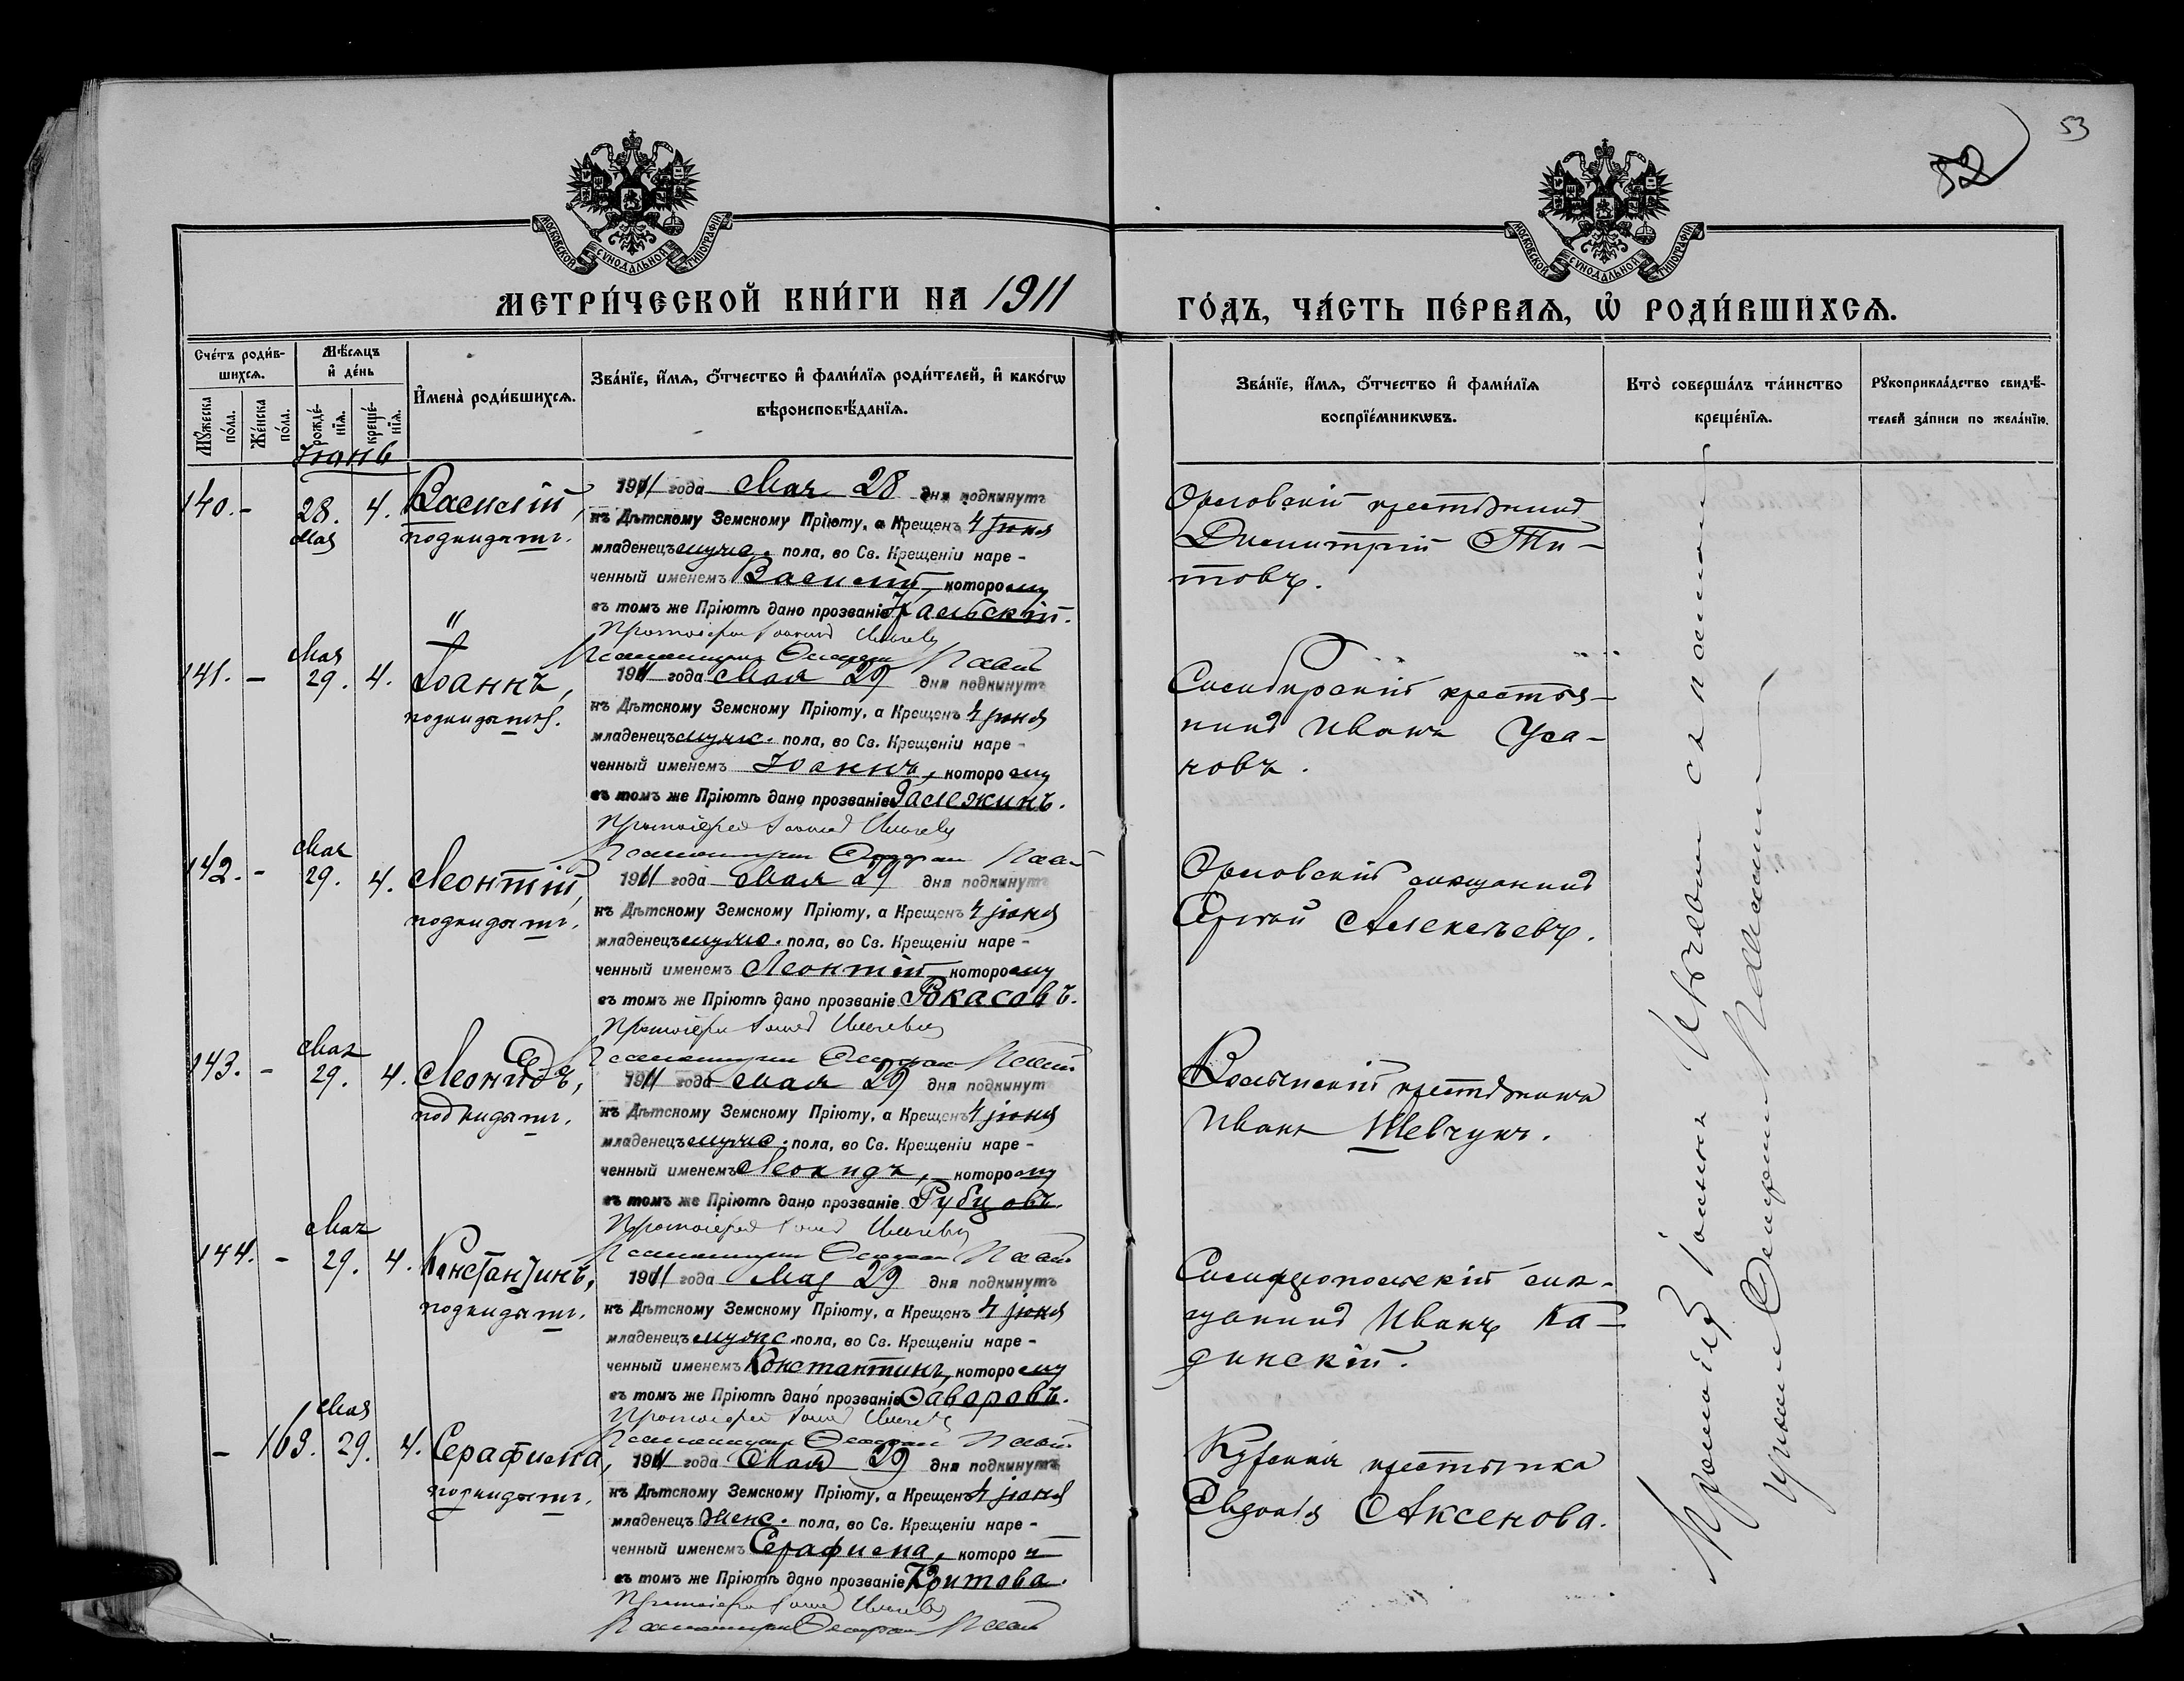 53
52
МОСКОВСКОЙ СѴНОДАЛЬНОЙ ТИПОГРАФІИ
МОСКОВСКОЙ СѴНОДАЛЬНОЙ ТИПОГРАФІИ
МЕТРИ́ЧЕСКОЙ КНИ́ГИ НА 1911
ГО́ДЪ, ЧА́СТЬ ПЕ́РВАѦ, Ѡ҆ РОДИ́ВШИХСѦ.
Сче́тъ роди́в-
шихсѧ.
Мꙋ́жеска по́ла.
Же́нска по́ла.
Мѣ́сѧцъ
и҆ де́нь
рожде́-
нїѧ.
креще́-
нїѧ.
И҆мена̀ роди́вшихсѧ.
Зва́нїе, и҆́мѧ, ѻ҆́тчество и҆ фами́лїѧ роди́телей, и҆ како́гѡ
вѣроисповѣ́данїѧ.
Зва́нїе, и҆́мѧ, ѻ҆́тчество и҆ фами́лїѧ
воспрїе́мникѡвъ.
Кто̀ соверша́лъ та́инство
креще́нїѧ.
Рꙋкоприкла́дство свидѣ́-
телей за́писи по жела́нїю.
Іюнь
140. - 28. Мая 4. Василій,
подкидышъ.
1911 года Мая 28 дня подкинутъ
къ Дѣтскому Земскому Пріюту, а Крещенъ 4 Іюня
младенецъ мужс. пола, во Св. Крещеніи наре-
ченный именемъ Василій, которому
въ томъ же Пріютѣ дано прозваніе Кальскій.
Протоіерей Іоаннъ
Орловскій крестьянинъ
Димитрій Ти-
товъ.
"
141. - Мая 29. 4. Іоаннъ,
подкидышъ.
1911 года Мая 29 дня подкинутъ
къ Дѣтскому Земскому Пріюту, а Крещенъ 4 Іюня
младенецъ мужс. пола, во Св. Крещеніи наре-
ченный именемъ Іоаннъ, которому
въ томъ же Пріютѣ дано прозваніе
Протоіерей Іоаннъ
Симбирскій крестья-
нинъ Иванъ Уса-
новъ.
142. - Мая 29. 4. Леонтій,
подкидышъ.
1911 года Мая 29 дня подкинутъ
къ Дѣтскому Земскому Пріюту, а Крещенъ 4 Іюня
младенецъ мужс. пола, во Св. Крещеніи наре-
ченный именемъ Леонтій, которому
въ томъ же Пріютѣ дано прозваніе Рокасовъ.
Протоіерей Іоаннъ
Орловскій мѣщанинъ
Сергѣй Алексѣевъ.
143. - Мая 29. 4. Леонидъ,
подкидышъ.
1911 года Мая 29 дня подкинутъ
къ Дѣтскому Земскому Пріюту, а Крещенъ 4 Іюня
младенецъ мужс. пола, во Св. Крещеніи наре-
ченный именемъ Леонидъ, которому
въ томъ же Пріютѣ дано прозваніе Рубцовъ.
Протоіерей Іоаннъ
Волынскій крестьянинъ
Иванъ Шевчукъ.
144. - Мая 29. 4. Константинъ,
подкидышъ.
1911 года Мая 29 дня подкинутъ
къ Дѣтскому Земскому Пріюту, а Крещенъ 4 Іюня
младенецъ мужс. пола, во Св. Крещеніи наре-
ченный именемъ Константинъ, которому
въ томъ же Пріютѣ дано прозваніе Ѳаворовъ.
Протоіерей Іоаннъ
Симферопольскій мѣ-
щанинъ Иванъ Ка-
динскій.
- 163. Мая 29. 4. Серафима,
подкидышъ.
1911 года Мая 29 дня подкинутъ
къ Дѣтскому Земскому Пріюту, а Крещенъ 4 Іюня
младенецъ женс. пола, во Св. Крещеніи наре-
ченный именемъ Серафима, которой
въ томъ же Пріютѣ дано прозваніе Критова.
Протоіерей Іоаннъ
Курская крестьянка
Евдокія Аксенова.
Протоіерей Іоаннъ съ псаломщ